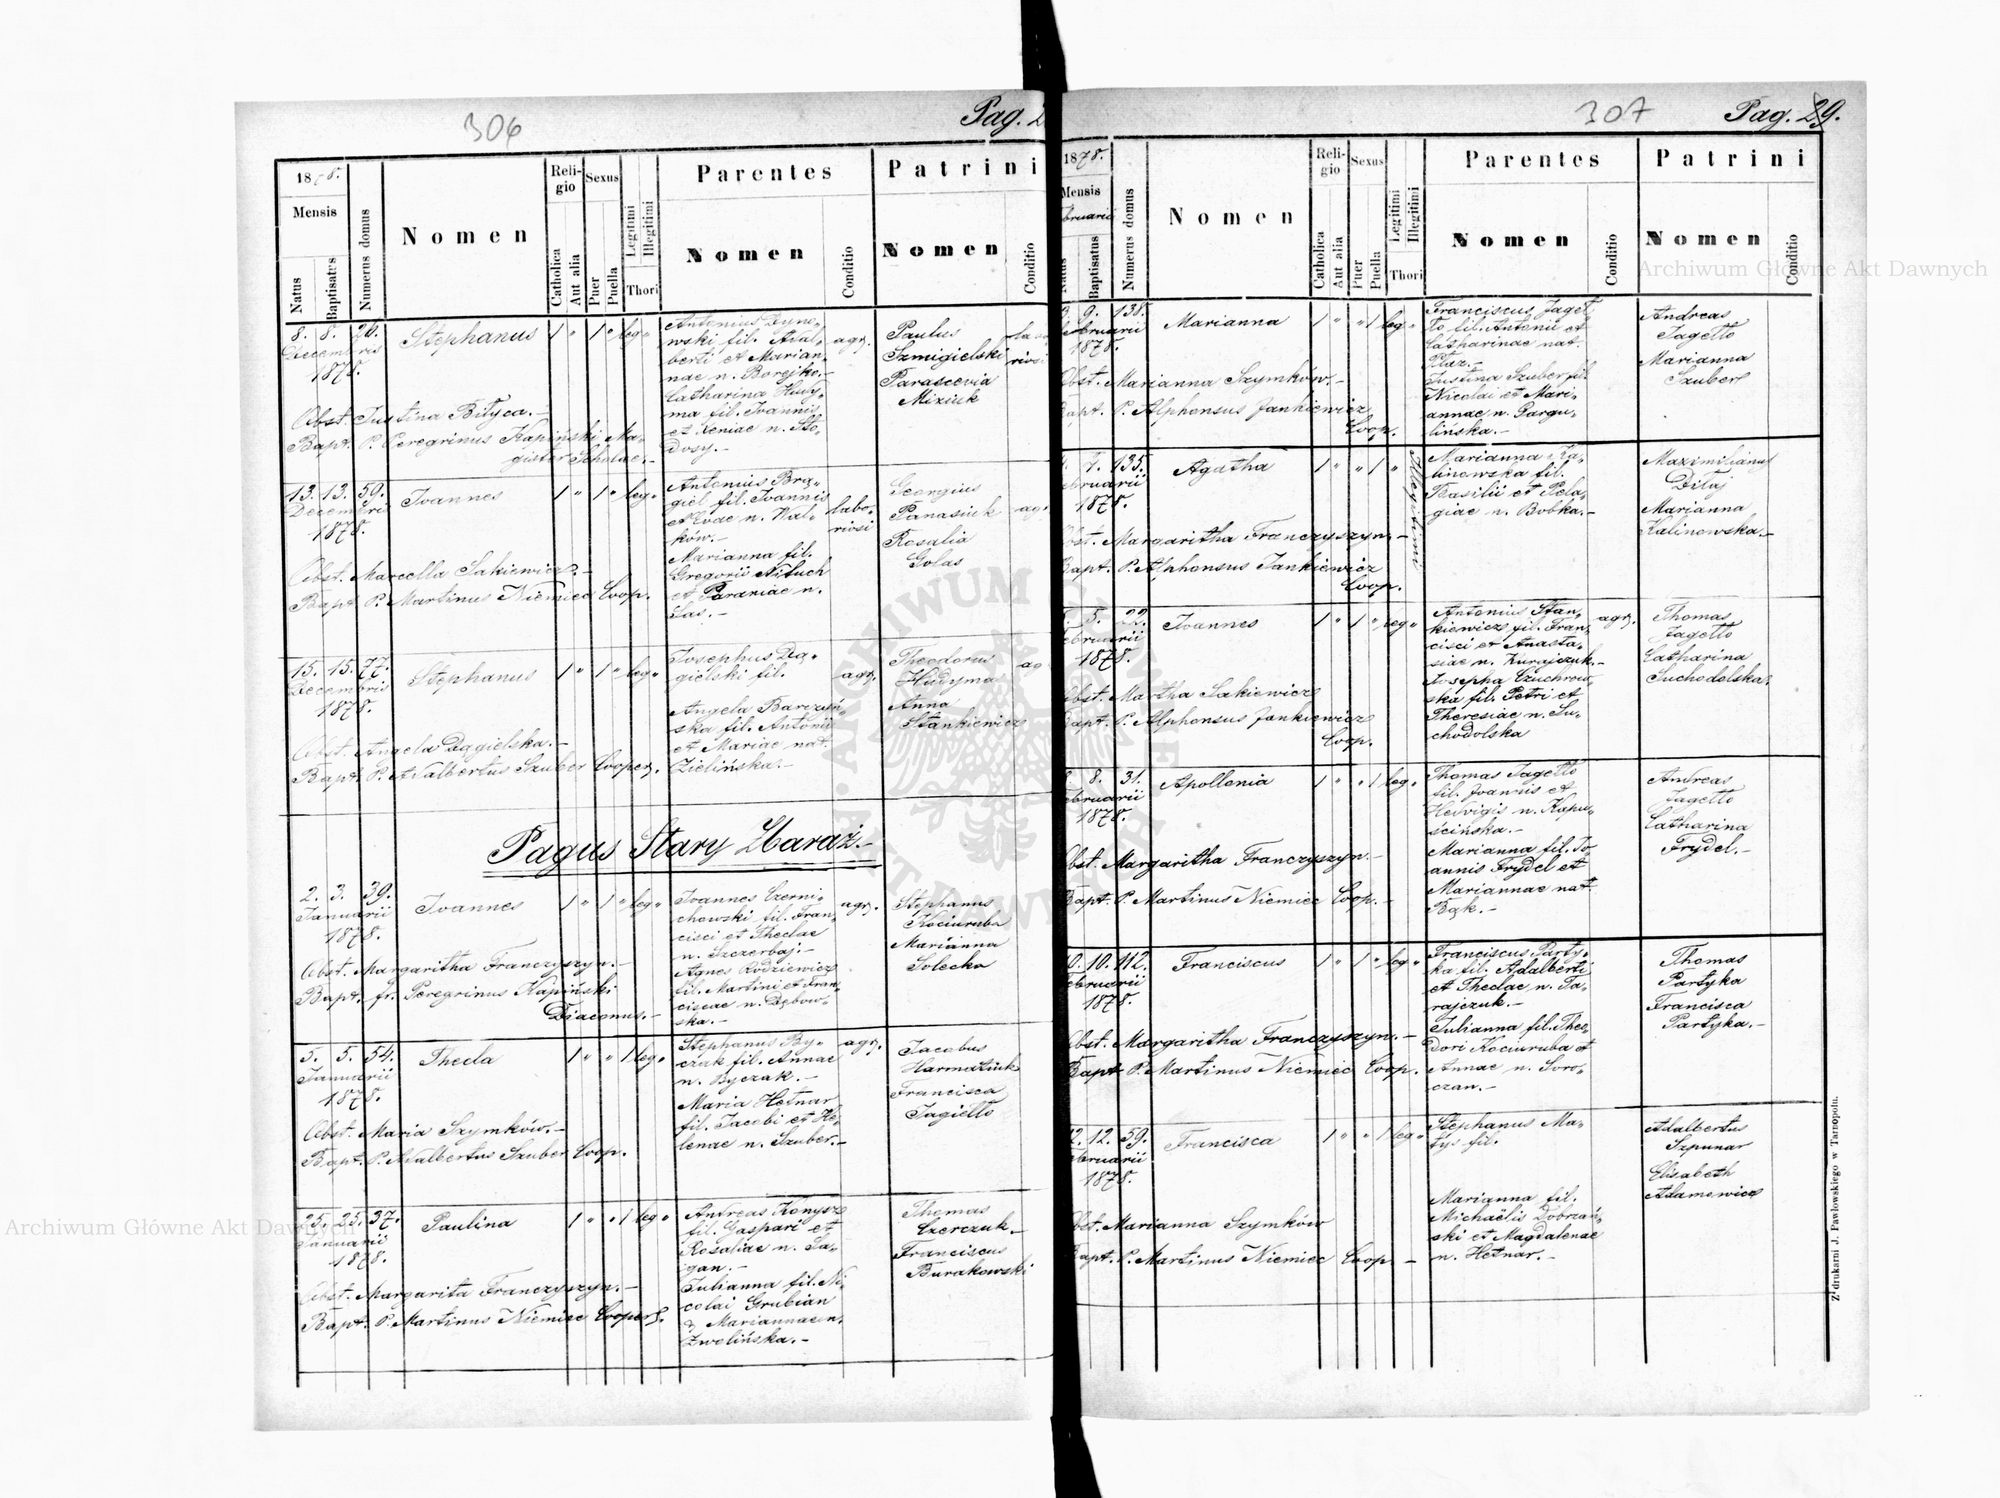 306
Pag. 2
1878.
Mensis
Natus
Baptisatus
Numerus domus
Nomen
Religio
Catholica
Aut alia
Sexus
Puer
Puella
Legitimi
Illegitimi
Thori
Parentes
Nomen
Conditio
Patrini
Nomen
Conditio
8. 8. 26.
Decembris
1878.
Stephanus
1 " 1 " leg "
Antonius Dyno-
wski fil. Adal-
berti et Marian-
nae n. Borejko.-
Catharina Hudy-
ma fil. Joannis
et Xeniae n. Sto-
dosy.-
agr.
Paulus
Szmigielski
Parascevia
Miziuk
Obst. Justina Bityca.-
Bapt. P. Peregrinus Kapiński Ma-
gister Scholae.-
13. 13. 59.
Decembris
1878.
Joannes
1 " 1 " leg "
Antonius Brą-
giel fil. Joannis
et Evae n. Wal-
ków.-
Marianna fil.
Gregorii Nituch
et Paraniae n.
Sas.-
labo-
riosi
Georgius
Panasiuk
Rosalia
Golas
ag.
Obst. Marcella Sakiewicz.-
Bapt. P. Martinus Niemiec Coop.
15. 15. 77.
Decembris
1878.
Stephanus
1 " 1 " leg "
Josephus Dą-
gielski fil.
Angela Barczyń-
ska fil. Antonii
et Mariae nat.
Zielińska.-
agr.
Theodorus
Hudyma
Anna
Stankiewicz
ag
Obst. Angela Dągielska.-
Bapt. P. Adalbertus Szuber Cooper.
Pagus Stary Zbaraż.-
2. 3. 39.
Januarii
1878.
Joannes
1 " 1 " leg "
Joannes Czerni-
chowski fil. Fran-
cisci et Theclae
n. Szczerbaj.-
Agnes Rodziewicz
fil. Martini et Fran-
ciscae n. Dębow-
ska.-
agr.
Stephanus
Kociuruba
Marianna
Solecka
Obst. Margaritha Franczyszyn.-
Bapt. fr. Peregrinus Kapiński
Diaconus.-
5. 5. 54.
Januarii
1878.
Thecla
1 " " 1 leg "
Stephanus By-
czak fil. Annae
n. Byczak.-
Maria Hetnar
fil. Jacobi et He-
lenae n. Szuber.-
agr.
Jacobus
Harmatiuk
Francisca
Jagiełło
Obst. Maria Szymków.-
Bapt. P. Adalbertus Szuber Coop.
25. 25. 37.
Januarii
1878.
Paulina
1 " " 1 leg "
Andreas Konysz
fil. Gaspari et
Rosaliae n. Sa-
gan.-
Julianna fil. Ni-
colai Grubian
& Mariannae n.
Zwolińska.-
Thomas
Czerczuk.-
Franciscus
Burakowski
Obst. Margarita Franczyszyn.-
Bapt. P. Martinus Niemiec Cooper.
307
Pag. 29.
1878.
Mensis
Februarii
Natus
Baptisatus
Numerus domus
Nomen
Religio
Catholica
Aut alia
Sexus
Puer
Puella
Legitimi
Illegitimi
Thori
Parentes
Nomen
Conditio
Patrini
Nomen
Conditio
9. 138.
Februarii
1878.
Marianna
1 " " 1 leg "
Franciscus Jageł-
ło fil. Antonii et
Catharinae nat.
Ptaz.
Justina Szuber fil.
Nicolai et Mari-
annae n. Pargu-
lińska.-
Andreas
Jagełło
Marianna
Szuber
Obst. Marianna Szymków.-
Bapt. P. Alphonsus Jankiewicz
Coop.
7. 135.
Februarii
1878.
Agatha
1 " " 1 "
Illegitimi
Marianna Ka-
linowska fil.
Basilii et Pela-
giae n. Bobka.-
Maximilianus
Ditaj
Marianna
Kalinowska.-
Obst. Margaritha Franczyszyn.-
Bapt. P. Alphonsus Jankiewicz
Coop.
5. 22.
Februarii
1878.
Joannes
1 " 1 " leg "
Antonius Stan-
kiewicz fil. Fran-
cisci et Anasta-
siae n. Kurajczuk.-
Josepha Czuchrow-
ska fil. Petri et
Theresiae n. Su-
chodolska
agr.
Thomas
Jagełło
Catharina
Suchodolska.
Obst. Martha Sakiewicz
Bapt. P. Alphonsus Jankiewicz
Coop.
8. 31.
Februarii
1878.
Apollonia
1 " " 1 leg "
Thomas Jagełło
fil. Joannis et
Hedvigis n. Kapu-
ścińska.-
Marianna fil. Jo-
annis Frydel et
Mariannae nat.
Bąk.-
Andreas
Jagełło
Catharina
Frydel.-
Obst. Margaritha Franczyszyn.-
Bapt. P. Martinus Niemiec Coop.-
10. 10. 112.
Februarii
1878.
Franciscus
1 " 1 " leg "
Franciscus Party-
ka fil. Adalberti
et Theclae n. Ta-
rajczuk.-
Julianna fil. Theo-
dori Kociuruba et
Annae n. Soro-
czan.-
Thomas
Partyka
Francisca
Partyka.-
Obst. Margaritha Franczyszyn.-
Bapt. P. Martinus Niemiec Coop.
12. 12. 59.
Februarii
1878.
Francisca
1 " " 1 leg "
Stephanus Ma-
tys fil.
Marianna fil.
Michaëlis Dobrzań-
ski et Magdalenae
n. Hetnar.-
Adalbertus
Szpunar
Elisabeth
Adamowicz
Obst. Marianna Szymków
Bapt. P. Martinus Niemiec Coop -
Z drukarni J. Pawłowskiego w Tarnopolu.
Archiwum Główne Akt Dawnych
Archiwum Główne Akt Dawnych
ARCHIWUM GŁÓWNE AKT DAWNYCH